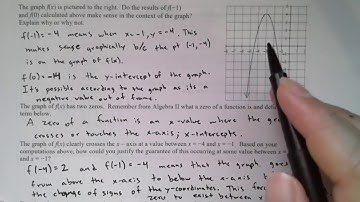 The graph of f(x) is pictured to the right. Do the results of f(-1)
and f(0) calculated above make sense in the context of the graph?
Explain why or why not.
f(-1) = -4 means when x=-1, y=-4. This
makes sense graphically b/c the pt (-1,-4)
is on the graph of f(x).
f(0) = -14 is the y-intercept of the graph.
It's possible according to the graph as its a
negative value out of frame.
The graph of f(x) has two zeros. Remember from Algebra II what a zero of a function is and define
term below.
A zero of a function is an x-value where the graph
crosses or touches the x-axis; x-intercepts.
The graph of f(x) clearly crosses the x – axis at a value between x = -4 and x = -1. Based on your
computations above, how could you justify the guarantee of this occurring at some value between x =
and x = -1?
f(-4) = 2 and f(-1) = -4 means that the graph goes
from above the x-axis to below the x-axis
the change of signs of the y-coordinates. This forces
zero to exist between x